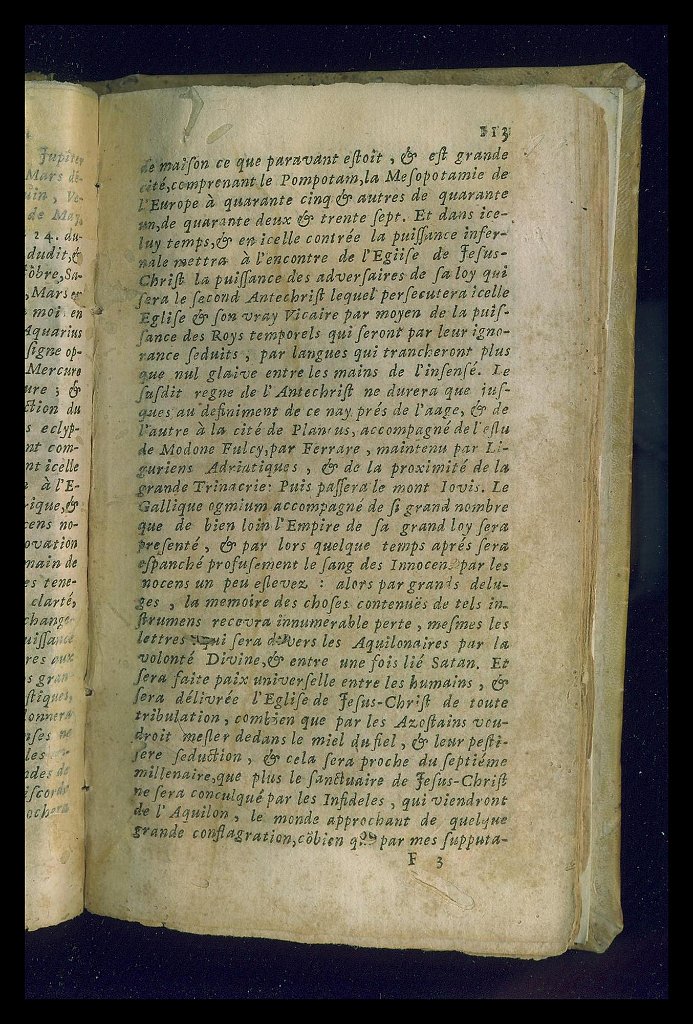 Jupiter
Mars dé-
din, Ve-
de May,
24. du-
dudit,&
tõbre, Sa-
, Mars er
moi en
Aquarius
signe op-
Mercure
ure ; &
ction du
s eclyp-
nt com-
nt icelle
à l'E-
rique,&
cens no-
ovation
main de
es tene-
clarté,
change-
uissance
res aux
s gran-
stiques,
lonnera
nses ne
les
ndes de
iscord
ochera
113
de maison ce que paravant estoit , & est grande
cité,comprenant le Pompotam,la Mesopotamie de
l'Europe à quarante cinq & autres de quarante
un,de quarante deux & trente sept. Et dans ice-
luy temps,& en icelle contrée la puissance infer-
nale mettra à l'encontre de l'Egiise de Jesus-
Christ la puissance des adversaires de sa loy qui
sera le second Antechrist lequel persecutera icelle
Eglise & son vray Vicaire par moyen de la puis-
sance des Roys temporels qui seront par leur igno-
rance seduits , par langues qui trancheront plus
que nul glaive entre les mains de l'insensé. Le
susdit regne de l'Antechrist ne durera que jus-
ques au definiment de ce nay prés de l'aage, & de
l'autre à la cité de Plancus, accompagné de l'eslu
de Modone Fulcy,par Ferrare , maintenu par Li-
guriens Adriatiques , & de la proximité de la
grande Trinacrie: Puis passera le mont Iovis. Le
Gallique ogmium accompagné de si grand nombre
que de bien loin l'Empire de sa grand loy sera
presenté , & par lors quelque temps aprés sera
espanché profusement le sang des Innocens par les
nocens un peu eslevez : alors par grands delu-
ges , la memoire des choses contenuës de tels in-
strumens recevra innumerable perte , mesmes les
lettres qui sera devers les Aquilonaires par la
volonté Divine,& entre une fois lié Satan. Et
sera faite paix universelle entre les humains , &
sera délivrée l'Eglise de Jesus-Christ de toute
tribulation , combien que par les Azostains vou-
droit mesler dedans le miel du fiel , & leur pesti-
fere seduction , & cela sera proche du septiéme
millenaire,que plus le sanctuaire de Jesus-Christ
ne sera conculqué par les Infideles , qui viendront
de l'Aquilon , le monde approchant de quelque
grande conflagration,cõbien que par mes supputa-
F 3